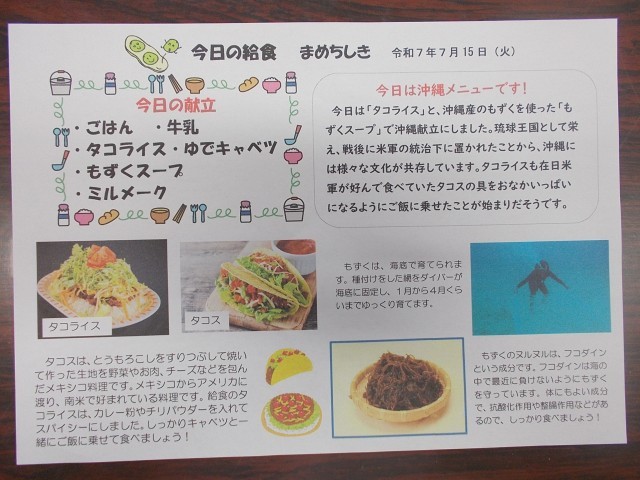 今日の給食 まめちしき 令和7年7月15日(火)
今日の献立
・ごはん ・牛乳
・タコライス・ゆでキャベツ
・もずくスープ
・ミルメーク
今日は沖縄メニューです!
今日は「タコライス」と、沖縄産のもずくを使った「も
ずくスープ」で沖縄献立にしました。琉球王国として栄
え、戦後に米軍の統治下に置かれたことから、沖縄に
は様々な文化が共存しています。タコライスも在日米
軍が好んで食べていたタコスの具をおなかいっぱい
になるようにご飯に乗せたことが始まりだそうです。
タコライス
タコス
もずくは、海底で育てられま
す。種付けをした網をダイバーが
海底に固定し、1月から4月くら
いまでゆっくり育てます。
タコスは、とうもろこしをすりつぶして焼い
て作った生地を野菜やお肉、チーズなどを包ん
だメキシコ料理です。メキシコからアメリカに
渡り、南米で好まれている料理です。給食のタ
コライスは、カレー粉やチリパウダーを入れて
スパイシーにしました。しっかりキャベツと一
緒にご飯に乗せて食べましょう!
もずくのヌルヌルは、フコダイン
という成分です。フコダインは海の
中で最近に負けないようにもずく
を守っています。体にもよい成分
で、抗酸化作用や整腸作用などがあ
るので、しっかり食べましょう!